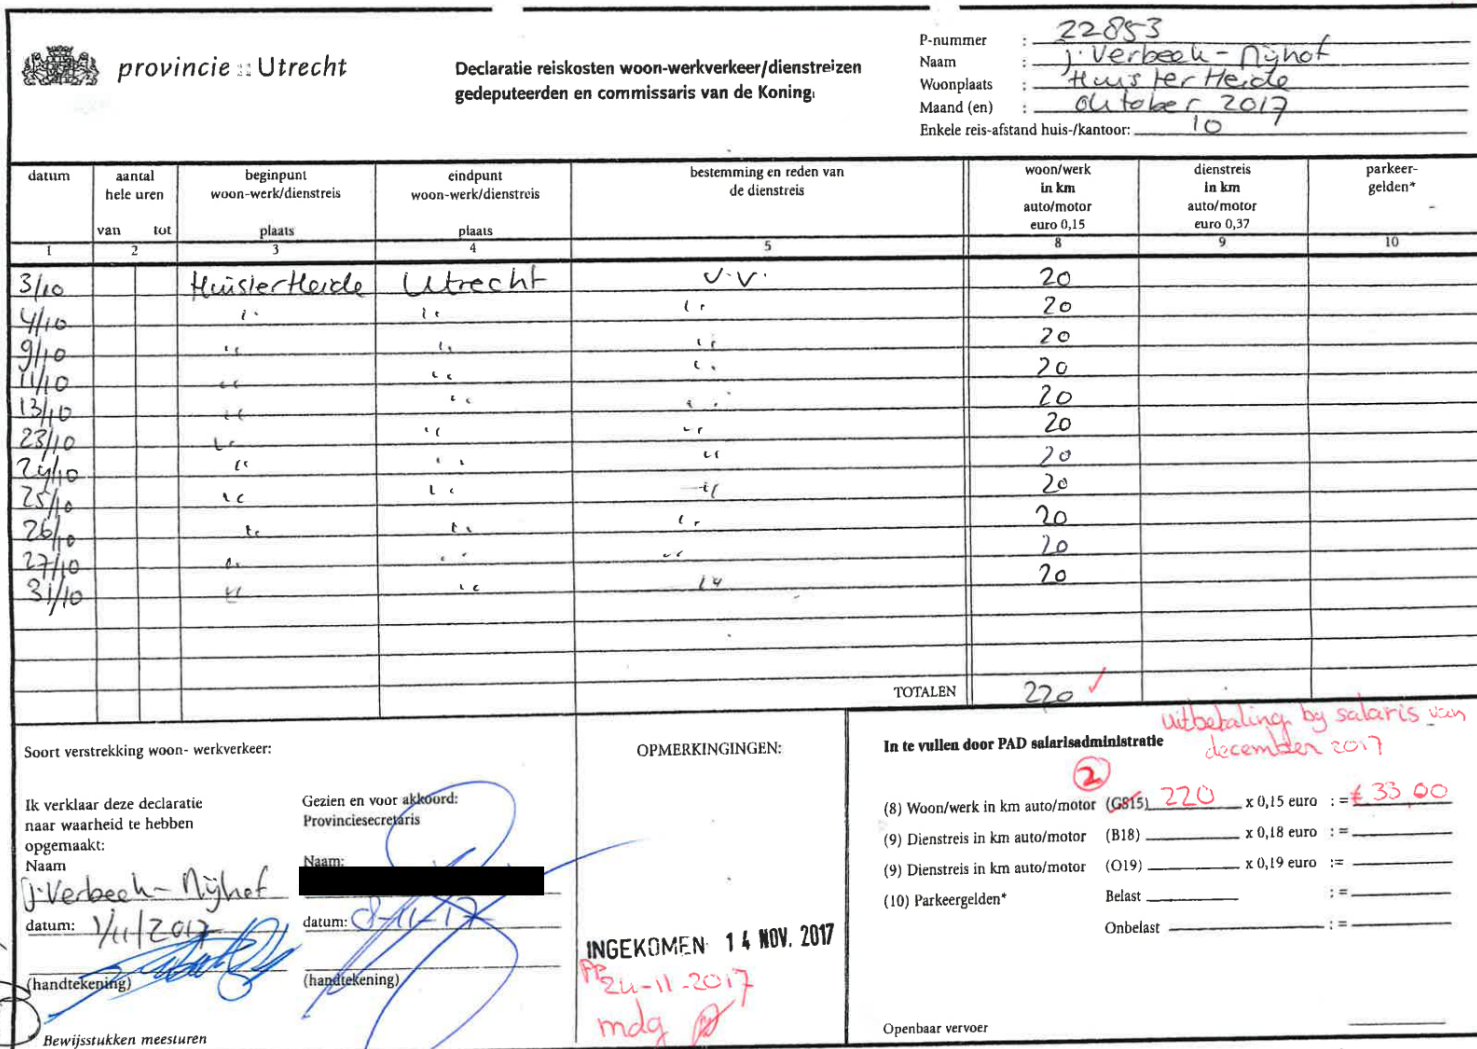 provincie :: Utrecht
Declaratie reiskosten woon-werkverkeer/dienstreizen
gedeputeerden en commissaris van de Koning
P-nummer : 22853
Naam : J. Verbeek - Nijhof
Woonplaats : Huis ter Heide
Maand (en) : oktober 2017
Enkele reis-afstand huis-/kantoor: 10
datum aantal hele uren van tot beginpunt woon-werk/dienstreis plaats eindpunt woon-werk/dienstreis plaats bestemming en reden van de dienstreis woon/werk in km auto/motor euro 0,15 dienstreis in km auto/motor euro 0,37 parkeer-gelden*
1 2 3 4 5 8 9 10
3/10 Huis ter Heide Utrecht v.v. 20
4/10 " " " 20
9/10 " " " 20
11/10 " " " 20
13/10 " " " 20
23/10 " " " 20
24/10 " " " 20
25/10 " " " 20
26/10 " " " 20
27/10 " " " 20
31/10 " " " 20
TOTALEN 220 ✓
Soort verstrekking woon- werkverkeer:
Ik verklaar deze declaratie
naar waarheid te hebben
opgemaakt:
Naam
J. Verbeek - Nijhof
datum: 1/11/2017
(handtekening)
Bewijsstukken meesturen
Gezien en voor akkoord:
Provinciesecretaris
Naam:
datum: 8-11-17
(handtekening)
OPMERKINGINGEN:
INGEKOMEN 14 NOV. 2017
24-11-2017
mdg
uitbetaling bij salaris van
december 2017
In te vullen door PAD salarisadministratie
2
(8) Woon/werk in km auto/motor (G815) 220 x 0,15 euro : = € 33,00
(9) Dienstreis in km auto/motor (B18) x 0,18 euro : =
(9) Dienstreis in km auto/motor (O19) x 0,19 euro :=
(10) Parkeergelden* Belast : =
Onbelast : =
Openbaar vervoer